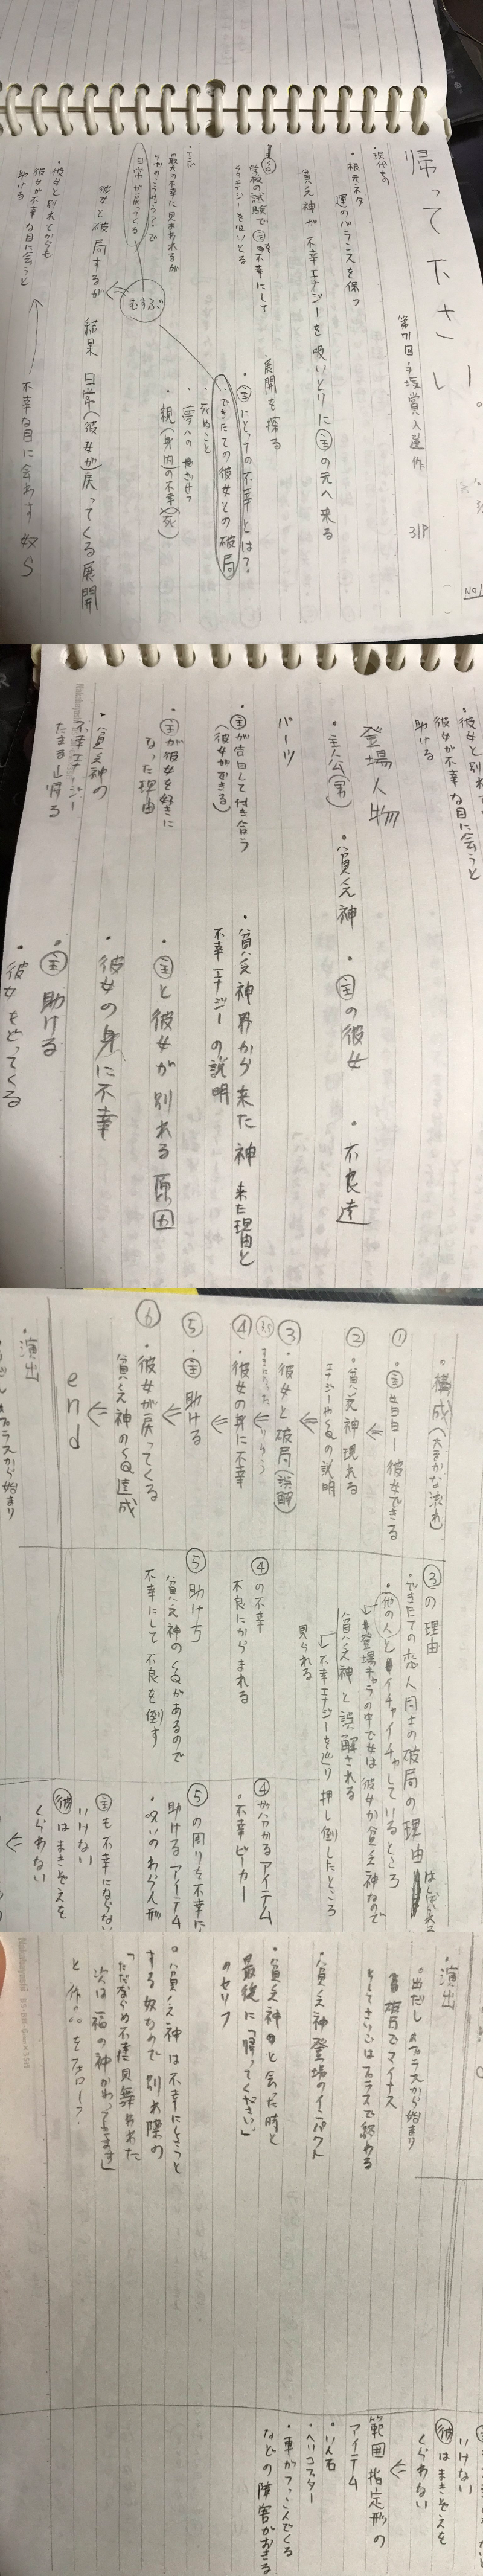 帰って下さい。
第71回手塚賞入選作
31P
No1
・現代もの
・根元ネタ
運のバランスを保つ
貧乏神が不幸エナジーを吸いとりに㊥の元へ来る
学校の試験で主を不幸にして
不幸エナジーを吸いとる
展開を探る
・主にとっての不幸とは?
・できたての彼女との破局
・死ぬこと
・夢への挫せつ
・親(身内の不幸)(死)
・主が
最大の不幸に見まわれるが
日常が戻ってくる
むすぶ
彼女と破局するが
結果 日常(彼女が)戻ってくる展開
・彼女と別れてからも
彼女が不幸な目に会うと
助ける
不幸な目に会わす奴ら
登場人物
・主人公(男)
・貧乏神
・主の彼女
・不良達
パーツ
・主が告白して付き合う
(彼女ができる)
・貧乏神界から来た神 来た理由と
不幸エナジーの説明
・主が彼女を好きに
なった理由
・主と彼女が別れる原因
・貧乏神の
不幸エナジー
たまる→帰る
・彼女の身に不幸
・主助ける
・彼女もどってくる
・構成(大まかな流れ)
① ・主告白→彼女できる
② ・貧乏神現れる
エナジーやQの説明
③ ・彼女と破局(誤解)
④ ・彼女の身に不幸
⑤ ・主助ける
⑥ ・彼女が戻ってくる
貧乏神のQ達成
end
③の理由
・できたての恋人同士の破局の理由
・他の人とイチャイチャしているところ
登場キャラの中で女は彼女か貧乏神なので
貧乏神と誤解される
不幸エナジーをとり押し倒したところ
見られる
④の不幸
不良にからまれる
⑤助け方
貧乏神のQがあるので
不幸にして不良を倒す
④が分かるアイテム
・不幸ビーカー
⑤の周りを不幸に
助けるアイテム
・呪いのわら人形
・主も不幸にならない
いけない
彼はまきぞえを
くらわない
・演出
・出だしはプラスから始まり
破局でマイナス
そしてさいごはプラスで終わる
・貧乏神登場のインパクト
・貧乏神と会った時と
最後に「帰ってください」
のセリフ
・貧乏神は不幸にさっと
する奴なので別れ際の
「ただならぬ不幸見舞われた
次は福の神がやってきます」
と作品をフォロー?
範囲指定形の
アイテム
・いん石
・ヘリコプター
・車がつっこんでくる
などの障害がおきる